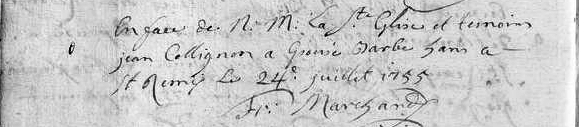 En face de N. M. La Ste Eglise et temoin
jean Collignon a Epousé Barbe hans a
St Remy Le 24e. juillet 1755
Fr: Marchand